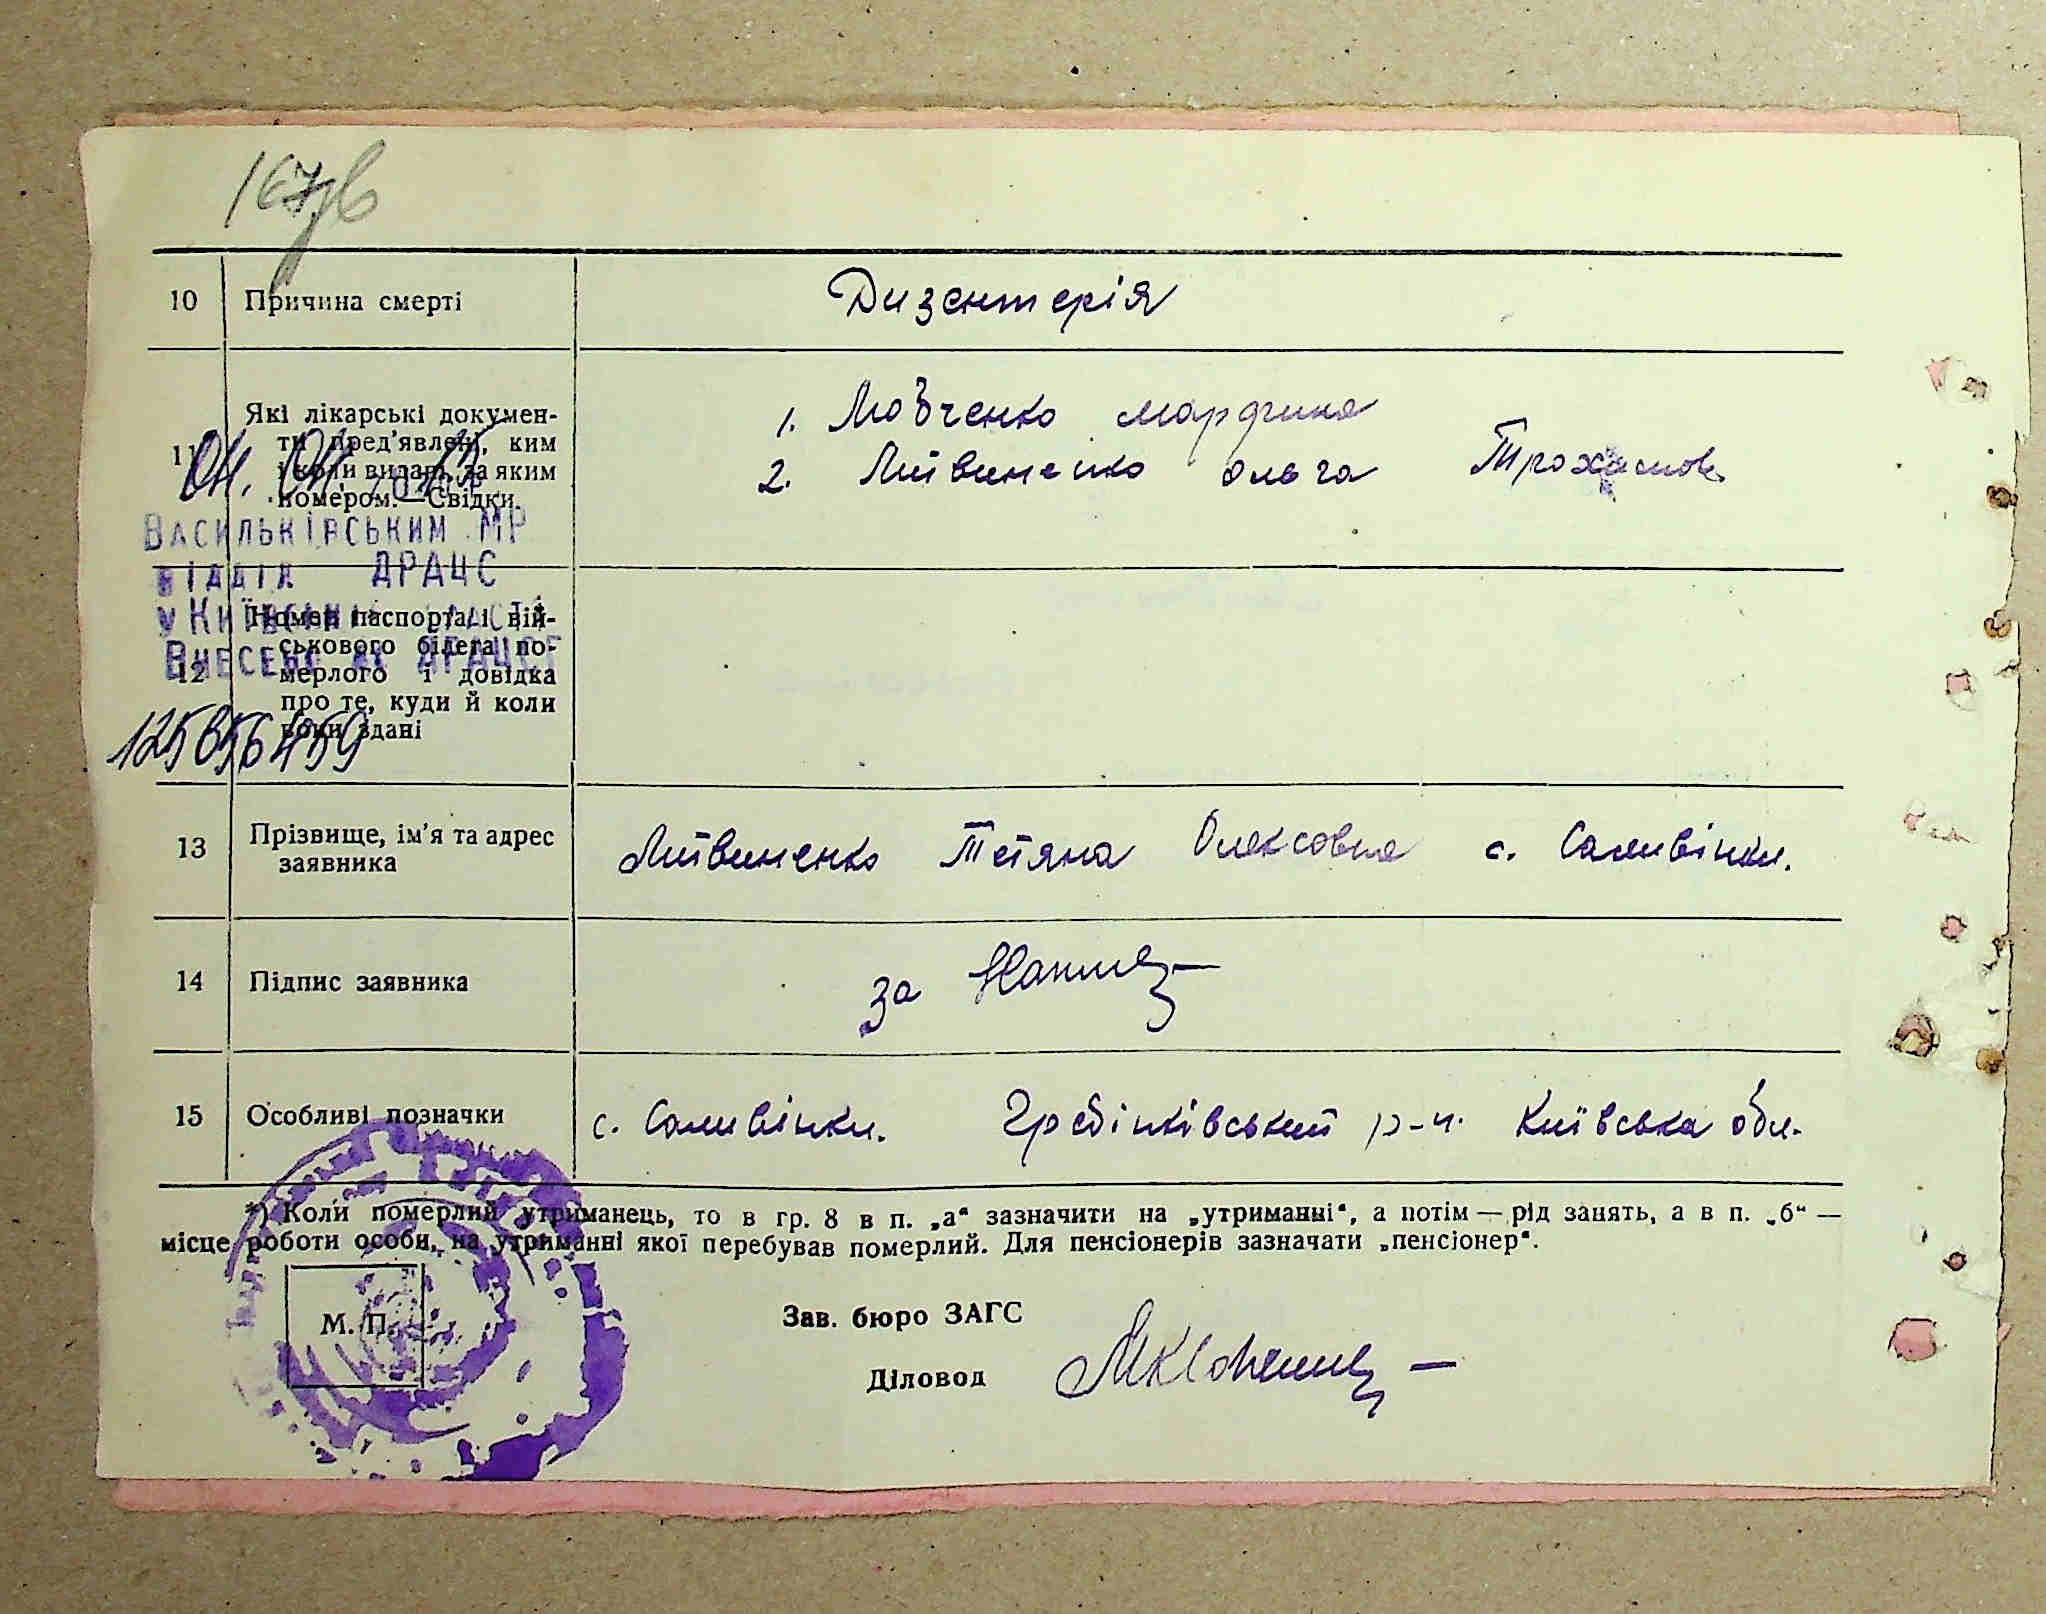 10 Причина смерті Дизентерія
11 Які лікарські докумен-
ти пред'явлені, ким
і коли видані, за яким
номером.—Свідки.
1. Мовченко
2. Литвиненко Ольга
Васильківським МР
відділ ДРАЦС
у Київській області
Внесено до ДРАЦСГ
12 Номер паспорта і вій-
ськового білета по-
мерлого і довідка
про те, куди й коли
вони здані
13 Прізвище, ім'я та адрес
заявника
Литвиненко Тетяна Олексовна с. Саливінки.
14 Підпис заявника за
15 Особливі позначки с. Саливінки. Гребінківський р-н. Київська обл.
*) Коли померлий утриманець, то в гр. 8 в п. „а“ зазначити на „утриманні“, а потім — рід занять, а в п. „б“ —
місце роботи особи, на утриманні якої перебував померлий. Для пенсіонерів зазначати „пенсіонер“.
М. П.
Зав. бюро ЗАГС
Діловод